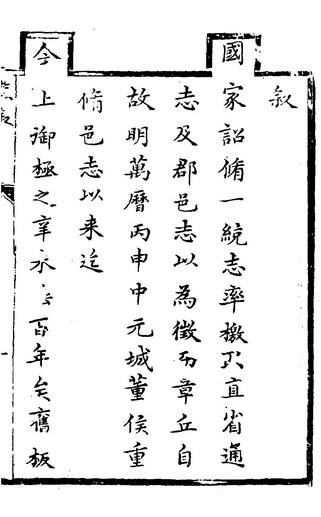 敘
國家詔脩一統志率檄取直省通
志及郡邑志以為徵而章丘自
故明萬曆丙申中元城董侯重
脩邑志以来迄
今上御極之辛未百年矣舊板